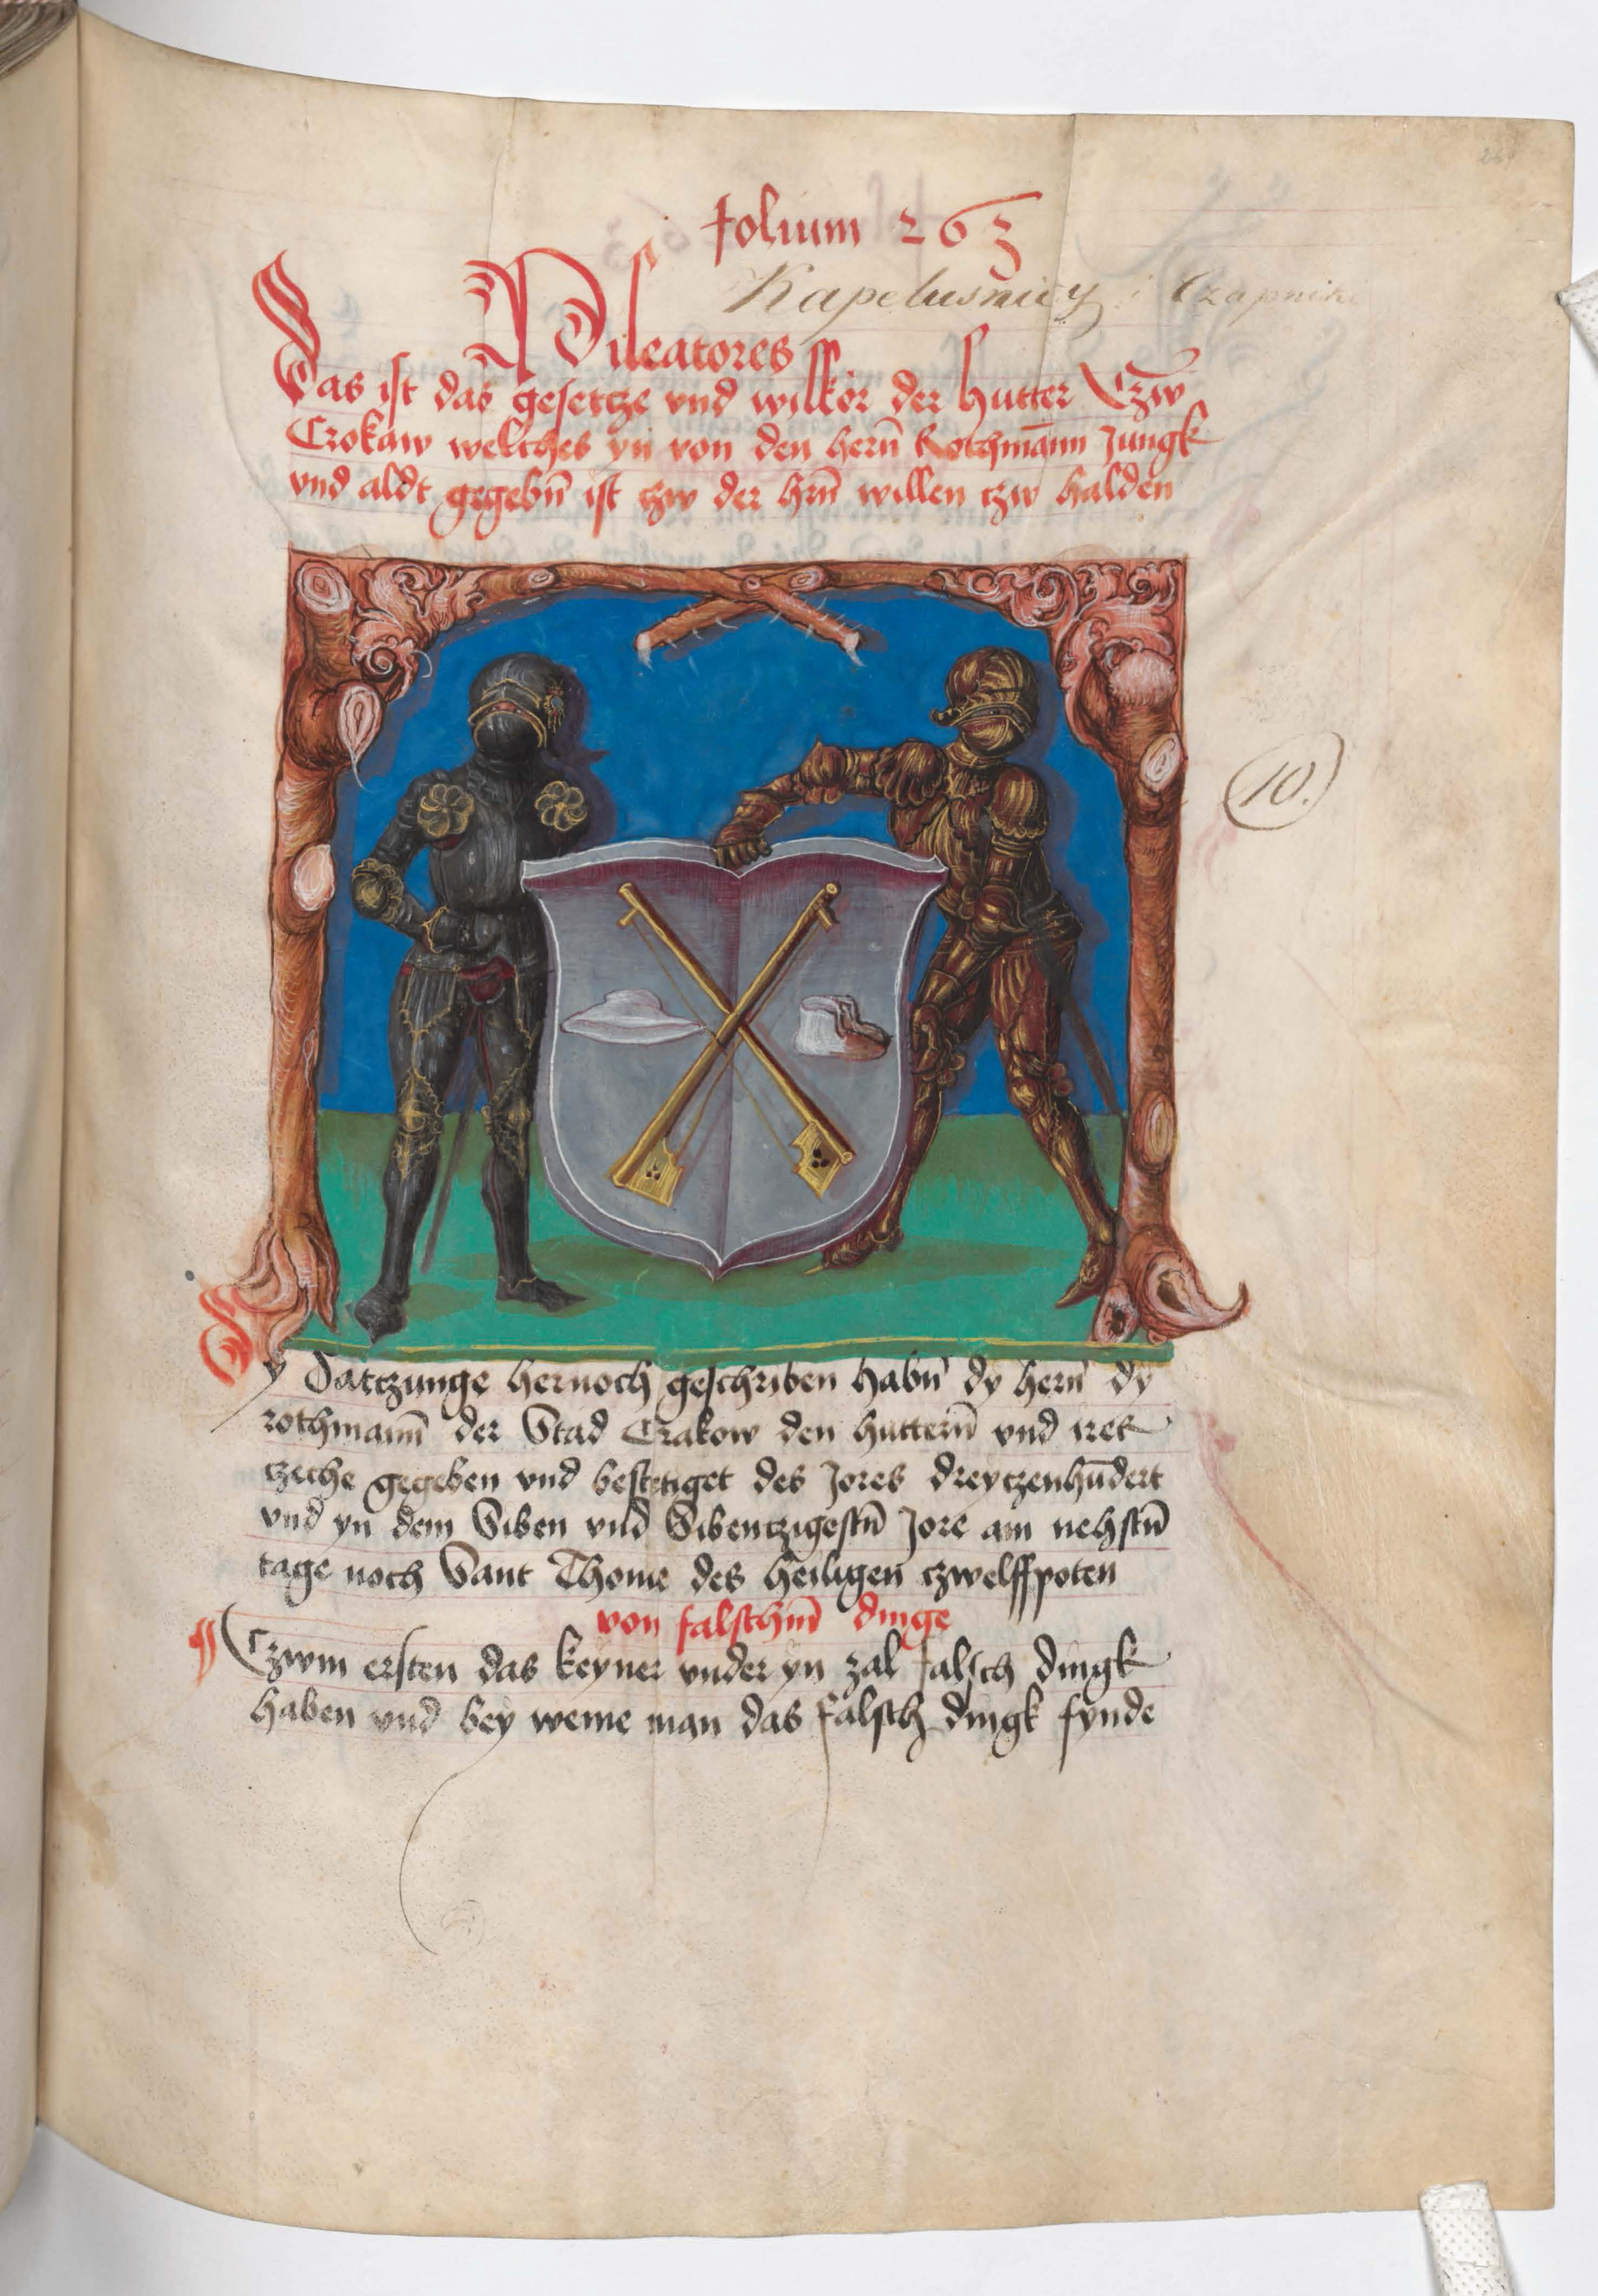 folium 263
Kapelusnicy i Czapnik
Pileatores
Das ist das gesetcze vnd wilkör der hutter Czw̄
Crokaw welches yn von den herñ Rothmān̄ Jungk
vnd aldt gegebñ ist czw der hrñ willen czw halden
10.
Dy Satczunge hernoch geschriben habñ dy herñ dy
rothman̄ der Stad Crakow den hutterñ vnd irer
czeche gegeben vnd bestetiget des Jores dreyczenhūdert
vnd yn dem Siben vnd Sibenczigestñ Jore am nehstñ
tage noch Sant Thome des heiligen czwelffpoten
von falschm̄ dinge
¶ Czwm ersten das keyner vnder yn zal falsch dingk
haben vnd bey weme man das falsch dingk fynde